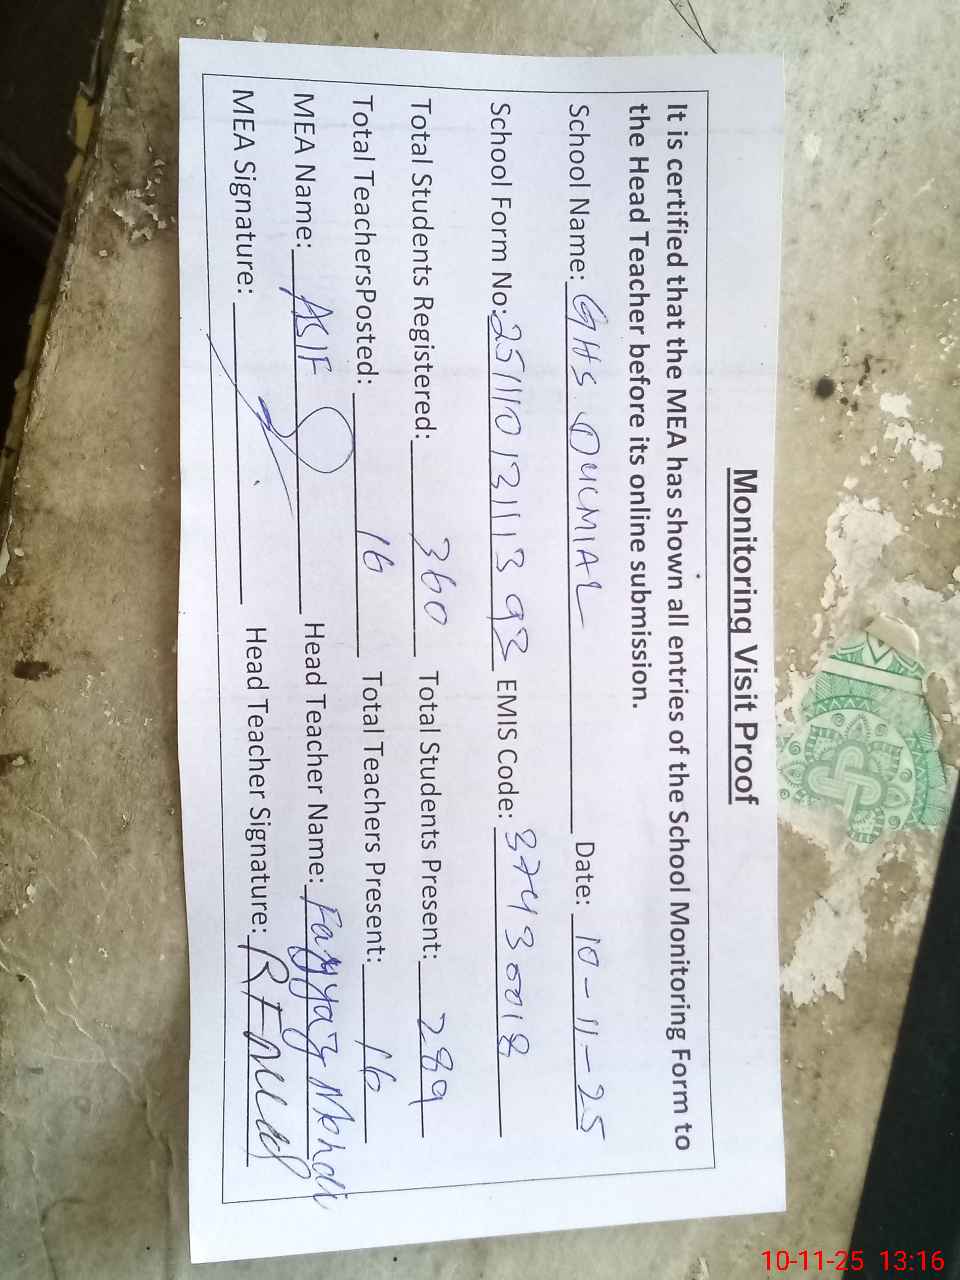 Monitoring Visit Proof
It is certified that the MEA has shown all entries of the School Monitoring Form to
the Head Teacher before its online submission.
School Name: GHS DHCMIAL Date: 10-11-25
School Form No: 2511101311393 EMIS Code: 37430018
Total Students Registered: 360 Total Students Present: 289
Total TeachersPosted: 16 Total Teachers Present: 16
MEA Name: ASIF Head Teacher Name: Fayyaz Mehdi
MEA Signature: Head Teacher Signature:
10-11-25 13:16